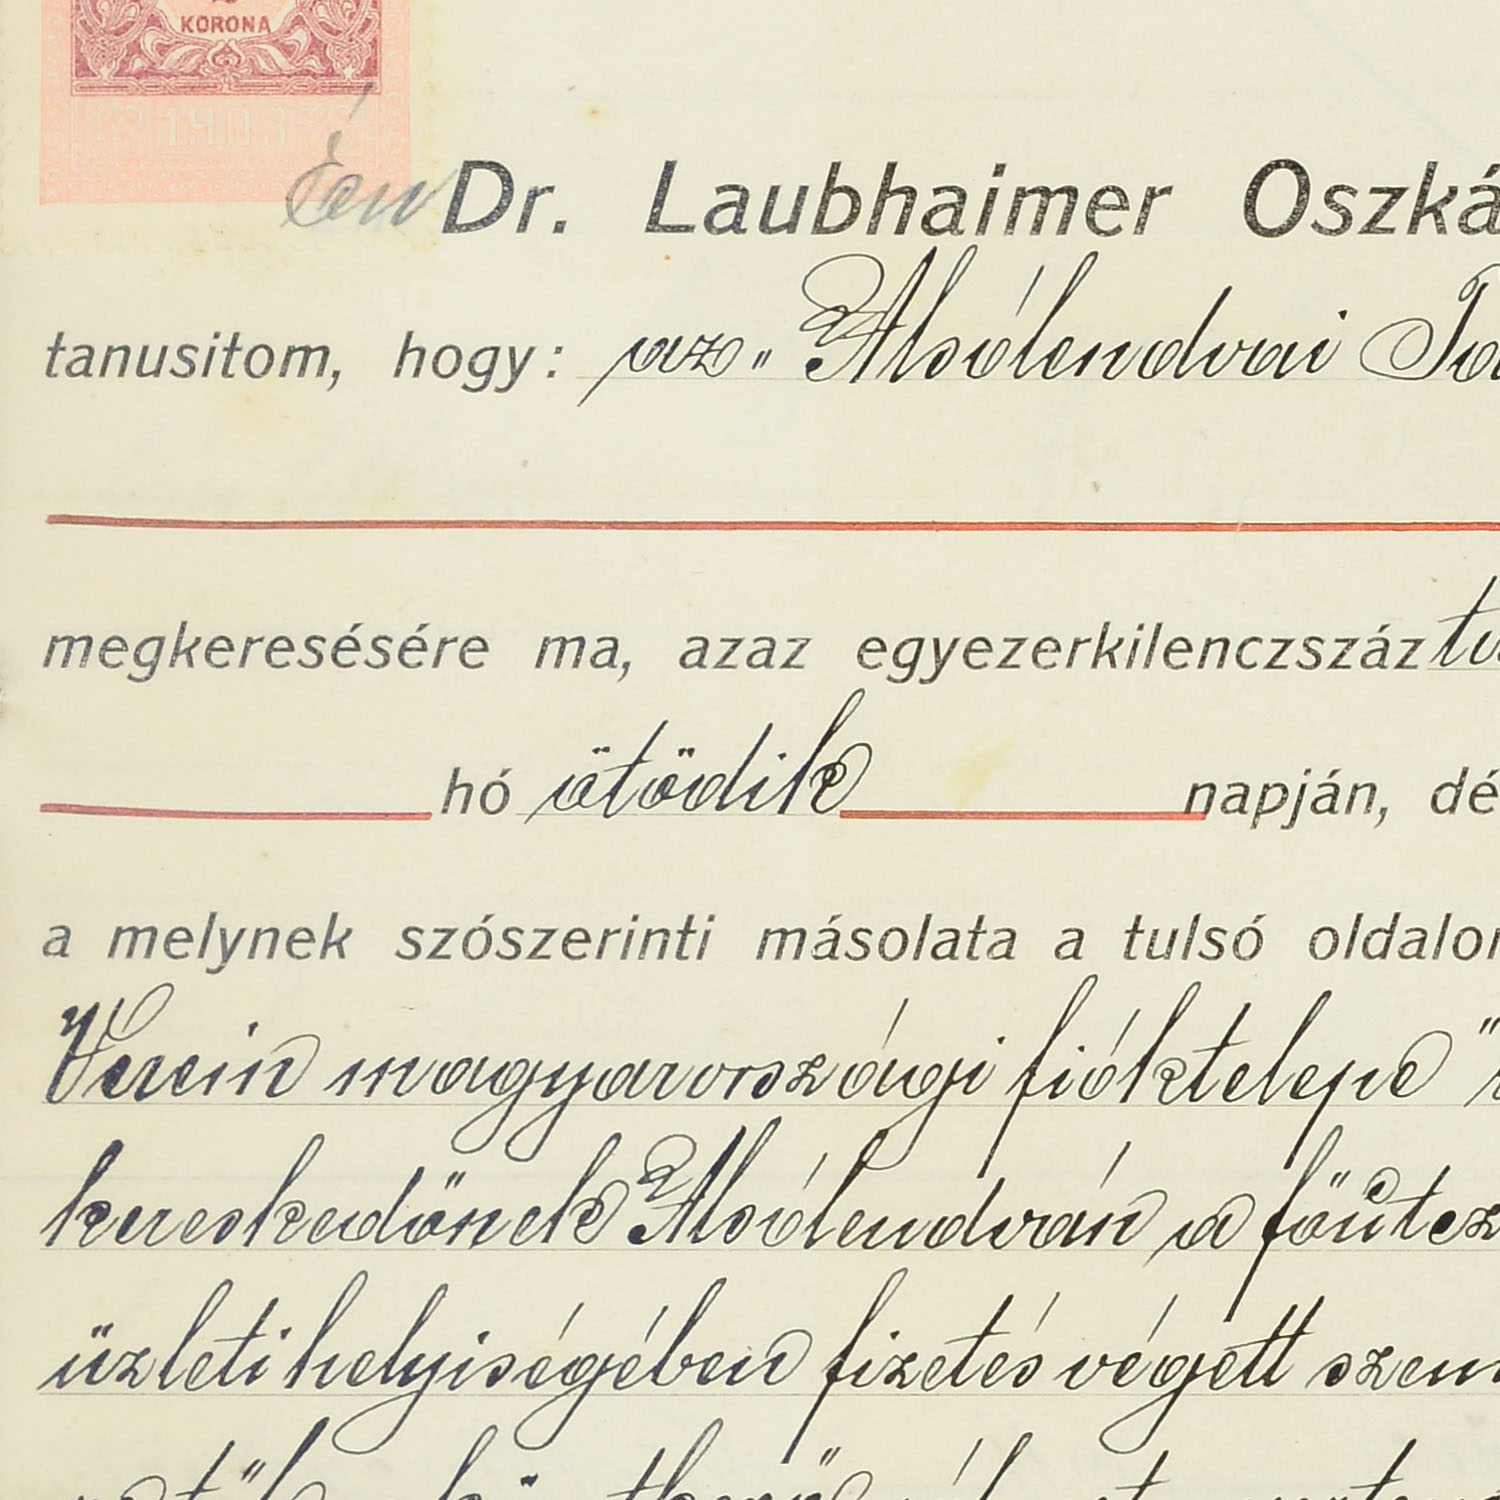 KORONA
1903
Én Dr. Laubhaimer Oszká
tanusitom, hogy: az „Alsólendvai
megkeresésére ma, azaz egyezerkilenczszáz
hó ötödik napján, dé
a melynek szószerinti másolata a tulsó oldalon
Verein magyarországi fióktelepe"
kereskedőnek Alsólendván a főútcz
üzleti helyiségében fizetés végett szem